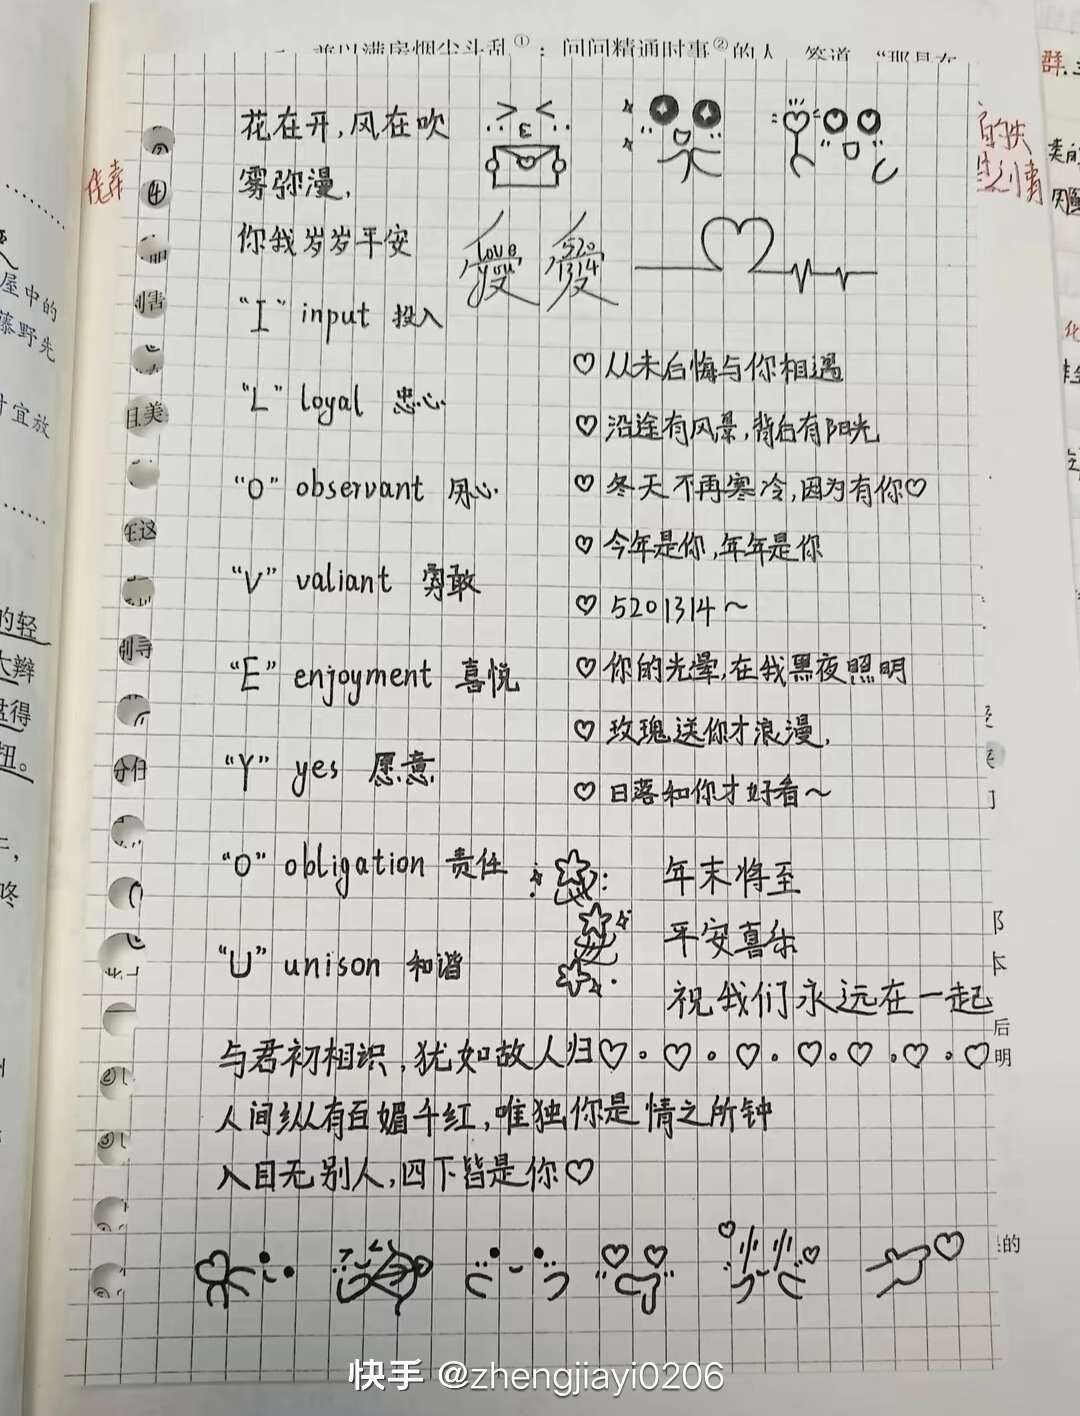 花在开,风在吹
雾弥漫,
你我岁岁平安
love you
520 1314
"I" input 投入
"L" loyal 忠心
"O" observant 用心
"V" valiant 勇敢
"E" enjoyment 喜悦
"Y" yes 愿意
"O" obligation 责任
"U" unison 和谐
♡ 从未后悔与你相遇
♡ 沿途有风景,背后有阳光
♡ 冬天不再寒冷,因为有你♡
♡ 今年是你,年年是你
♡ 5201314~
♡ 你的光晕,在我黑夜照明
♡ 玫瑰送你才浪漫,
♡ 日落和你才好看~
年末将至
平安喜乐
祝我们永远在一起
与君初相识,犹如故人归♡·♡·♡·♡·♡·♡·♡
人间纵有百媚千红,唯独你是情之所钟
入目无别人,四下皆是你♡
屋中的
藤野先
宜放
的轻
大辩
扭。
问问精通时事②的人
后
明
快手 @zhengjiayi0206